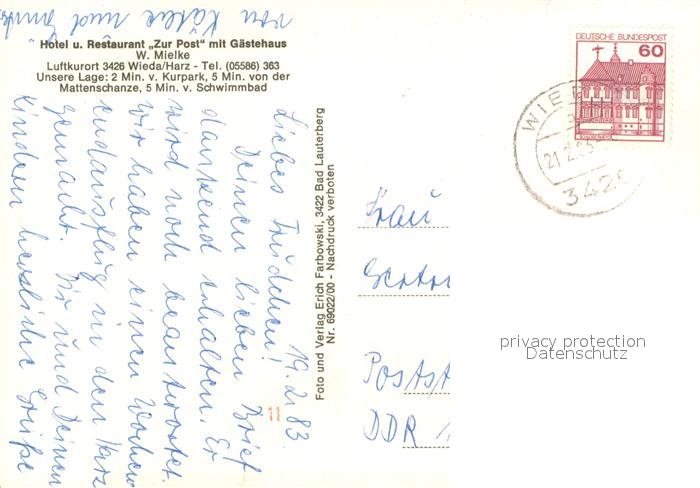 Hotel u. Restaurant „Zur Post" mit Gästehaus
W. Mielke
Luftkurort 3426 Wieda/Harz - Tel. (05586) 363
Unsere Lage: 2 Min. v. Kurpark, 5 Min. von der
Mattenschanze, 5 Min. v. Schwimmbad
19.2.83.
Liebes Trudchen!
Deinen lieben Brief
dankend erhalten. Er
wird noch beantwortet.
Wir haben einen Wochen
endausflug in den Harz
gemacht. Dir und Deinen
Kindern herzliche Grüße
von Käthe und
Foto und Verlag Erich Farbowski, 3422 Bad Lauterberg
Nr. 69022/00 - Nachdruck verboten
DEUTSCHE BUNDESPOST
60
WIE
21.2.
342
Frau
Gertr
Postst
DDR 1
11
privacy protection
Datenschutz